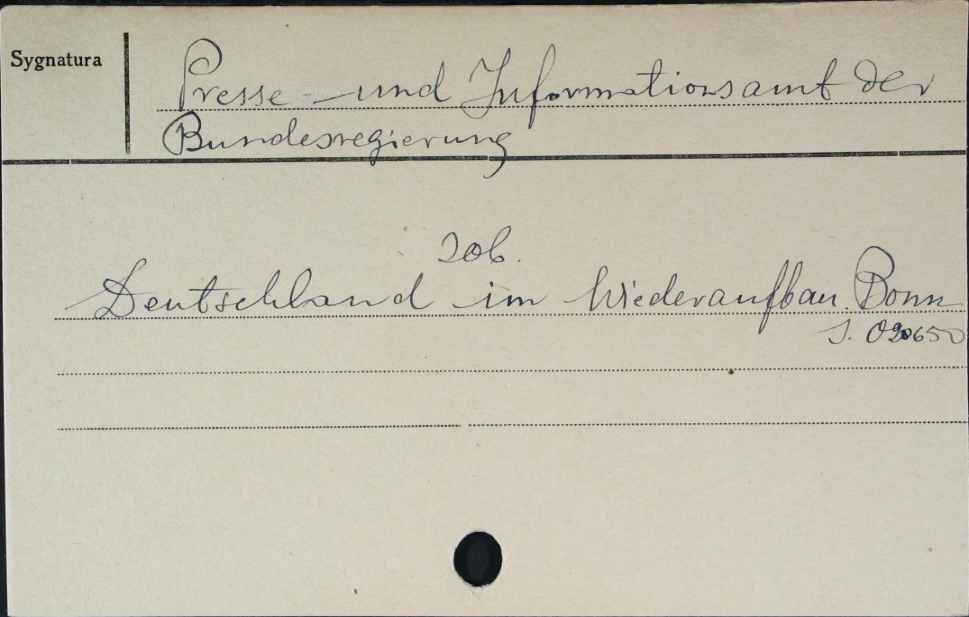 Sygnatura
Presse- und Informationsamt der
Bundesregierung
Zob.
Deutschland im Wiederaufbau. Bonn
S. 020650